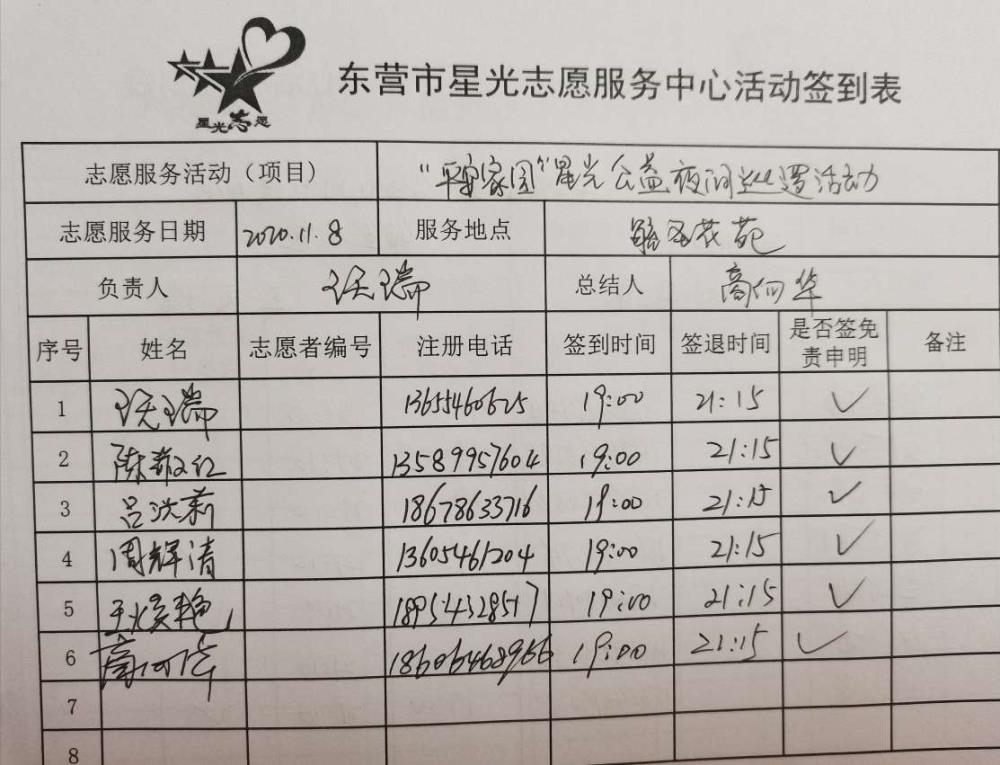 星光志愿
东营市星光志愿服务中心活动签到表
志愿服务活动（项目） “平安家园”星光公益夜间巡逻活动
志愿服务日期 2020.11.8 服务地点 花苑
负责人 瑞 总结人 高向华
序号 姓名 志愿者编号 注册电话 签到时间 签退时间 是否签免责申明 备注
1 瑞 13655460625 19:00 21:15 ✓
2 陈 红 13589957604 19:00 21:15 ✓
3 吕洪莉 18678633716 19:00 21:15 ✓
4 周辉清 13605461204 19:00 21:15 ✓
5 艳 18954328517 19:00 21:15 ✓
6 高向华 18606468966 19:00 21:15 ✓
7
8